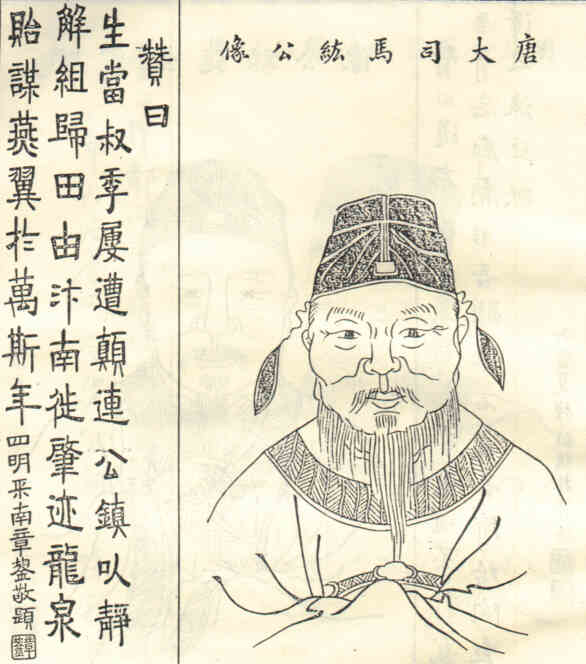 唐大司馬紘公像
贊曰
生當叔季屢遭顛連公鎮以靜
解組歸田由汴南徙肇迹龍泉
貽謀燕翼於萬斯年
四明采南章鋆敬題